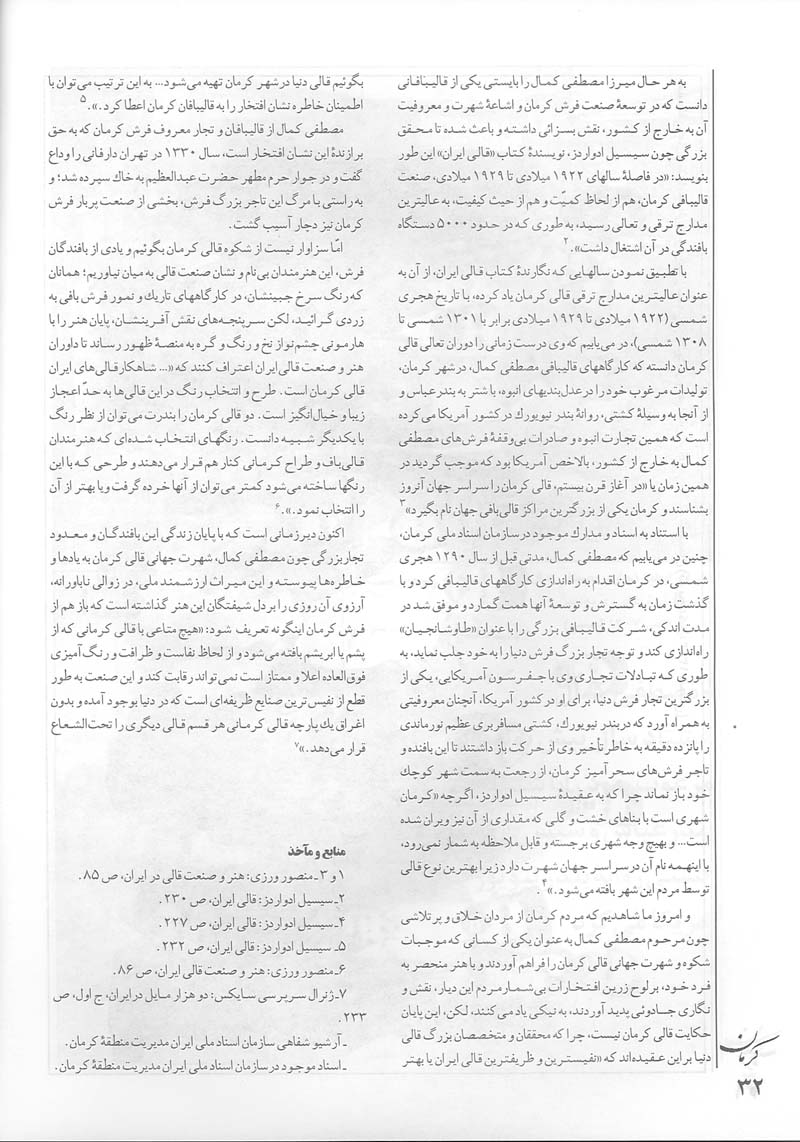 به هر حال میرزا مصطفی کمال را بایستی یکی از قالیبافانی
دانست که در توسعهٔ صنعت فرش کرمان و اشاعهٔ شهرت و معروفیت
آن به خارج از کشور، نقش بسزائی داشته و باعث شده تا محقق
بزرگی چون سیسیل ادواردز، نویسندهٔ کتاب «قالی ایران» این طور
بنویسد: «در فاصلهٔ سالهای ۱۹۲۲ میلادی تا ۱۹۲۹ میلادی، صنعت
قالیبافی کرمان، هم از لحاظ کمیّت و هم از حیث کیفیت، به عالیترین
مدارج ترقی و تعالی رسید، به طوری که در حدود ۵۰۰۰ دستگاه
بافندگی در آن اشتغال داشت».۲
با تطبیق نمودن سالهایی که نگارندهٔ کتاب قالی ایران، از آن به
عنوان عالیترین مدارج ترقی قالی کرمان یاد کرده، با تاریخ هجری
شمسی (۱۹۲۲ میلادی تا ۱۹۲۹ میلادی برابر با ۱۳۰۱ شمسی تا
۱۳۰۸ شمسی)، در می‌یابیم که وی درست زمانی را دوران تعالی قالی
کرمان دانسته که کارگاههای قالیبافی مصطفی کمال، در شهر کرمان،
تولیدات مرغوب خود را در عدل‌بندیهای انبوه، با شتر به بندرعباس و
از آنجا به وسیلهٔ کشتی، روانهٔ بندر نیویورک در کشور آمریکا می‌کرده
است که همین تجارت انبوه و صادرات بی‌وقفهٔ فرش‌های مصطفی
کمال به خارج از کشور، بالاخص آمریکا بود که موجب گردید در
همین زمان یا «در آغاز قرن بیستم، قالی کرمان را سراسر جهان آنروز
بشناسند و کرمان یکی از بزرگترین مراکز قالی‌بافی جهان نام بگیرد»۳
با استناد به اسناد و مدارک موجود در سازمان اسناد ملی کرمان،
چنین در می‌یابیم که مصطفی کمال، مدتی قبل از سال ۱۲۹۰ هجری
شمسی، در کرمان اقدام به راه‌اندازی کارگاههای قالیبافی کرد و با
گذشت زمان به گسترش و توسعهٔ آنها همت گمارد و موفق شد در
مدت اندکی، شرکت قالیبافی بزرگی را با عنوان «طاوشانجیان»
راه‌اندازی کند و توجه تجار بزرگ فرش دنیا را به خود جلب نماید، به
طوری که تبادلات تجاری وی با جفرسون آمریکایی، یکی از
بزرگترین تجار فرش دنیا، برای او در کشور آمریکا، آنچنان معروفیتی
به همراه آورد که در بندر نیویورک، کشتی مسافربری عظیم نورماندی
را پانزده دقیقه به خاطر تأخیر وی از حرکت باز داشتند تا این بافنده و
تاجر فرش‌های سحرآمیز کرمان، از رجعت به سمت شهر کوچک
خود باز نماند چرا که به عقیدهٔ سیسیل ادواردز، اگرچه «کرمان
شهری است با بناهای خشت و گلی که مقداری از آن نیز ویران شده
است... و بهیچ وجه شهری برجسته و قابل ملاحظه به شمار نمی‌رود،
با اینهمه نام آن در سراسر جهان شهرت دارد زیرا بهترین نوع قالی
توسط مردم این شهر بافته می‌شود.»۴.
و امروز ما شاهدیم که مردم کرمان از مردان خلاق و پر تلاشی
چون مرحوم مصطفی کمال به عنوان یکی از کسانی که موجبات
شکوه و شهرت جهانی قالی کرمان را فراهم آوردند و با هنر منحصر به
فرد خود، بر لوح زرین افتخارات بی‌شمار مردم این دیار، نقش و
نگاری جادوئی پدید آوردند، به نیکی یاد می‌کنند، لکن، این پایان
حکایت قالی کرمان نیست، چرا که محققان و متخصصان بزرگ قالی
دنیا بر این عقیده‌اند که «نفیسترین و ظریفترین قالی ایران یا بهتر
بگوئیم قالی دنیا در شهر کرمان تهیه می‌شود... به این ترتیب می‌توان با
اطمینان خاطره نشان افتخار را به قالیبافان کرمان اعطا کرد.».۵
مصطفی کمال از قالیبافان و تجار معروف فرش کرمان که به حق
برازندهٔ این نشان افتخار است، سال ۱۳۳۰ در تهران دارفانی را وداع
گفت و در جوار حرم مطهر حضرت عبدالعظیم به خاک سپرده شد؛ و
به راستی با مرگ این تاجر بزرگ فرش، بخشی از صنعت پربار فرش
کرمان نیز دچار آسیب گشت.
امّا سزاوار نیست از شکوه قالی کرمان بگوئیم و یادی از بافندگان
فرش، این هنرمندان بی‌نام و نشان صنعت قالی به میان نیاوریم؛ همانان
که رنگ سرخ جبینشان، در کارگاههای تاریک و نمور فرش بافی به
زردی گرائید، لکن سرپنجه‌های نقش آفرینشان، پایان هنر را با
هارمونی چشم‌نواز نخ و رنگ و گره به منصهٔ ظهور رساند تا داوران
هنر و صنعت قالی ایران اعتراف کنند که «... شاهکار قالی‌های ایران
قالی کرمان است. طرح و انتخاب رنگ در این قالی‌ها به حدّ اعجاز
زیبا و خیال‌انگیز است. دو قالی کرمان را بندرت می‌توان از نظر رنگ
با یکدیگر شبیه دانست. رنگهای انتخاب شده‌ای که هنرمندان
قالی‌باف و طراح کرمانی کنار هم قرار می‌دهند و طرحی که با این
رنگها ساخته می‌شود کمتر می‌توان از آنها خرده گرفت و یا بهتر از آن
را انتخاب نمود.».۶
اکنون دیر زمانی است که با پایان زندگی این بافندگان و معدود
تجار بزرگی چون مصطفی کمال، شهرت جهانی قالی کرمان به یادها و
خاطره‌ها پیوسته و این میراث ارزشمند ملی، در زوالی ناباورانه،
آرزوی آن روزی را بر دل شیفتگان این هنر گذاشته است که باز هم از
فرش کرمان اینگونه تعریف شود: «هیچ متاعی با قالی کرمانی که از
پشم یا ابریشم بافته می‌شود و از لحاظ نفاست و ظرافت و رنگ‌آمیزی
فوق‌العاده اعلا و ممتاز است نمی‌تواند رقابت کند و این صنعت به طور
قطع از نفیس‌ترین صنایع ظریفه‌ای است که در دنیا بوجود آمده و بدون
اغراق یک پارچه قالی کرمانی هر قسم قالی دیگری را تحت‌الشعاع
قرار می‌دهد.»۷
منابع و مآخذ
۱ و ۳ـ منصور ورزی: هنر و صنعت قالی در ایران، ص ۸۵.
۲ـ سیسیل ادواردز: قالی ایران، ص ۲۳۰.
۴ـ سیسیل ادواردز: قالی ایران، ص ۲۲۷.
۵ـ سیسیل ادواردز: قالی ایران، ص ۲۳۲.
۶ـ منصور ورزی: هنر و صنعت قالی ایران، ص ۸۶.
۷ـ ژنرال سرپرسی سایکس: دو هزار مایل در ایران، ج اول، ص
۲۳۳.
ـ آرشیو شفاهی سازمان اسناد ملی ایران مدیریت منطقهٔ کرمان.
ـ اسناد موجود در سازمان اسناد ملی ایران مدیریت منطقهٔ کرمان.
کرمان
۳۲